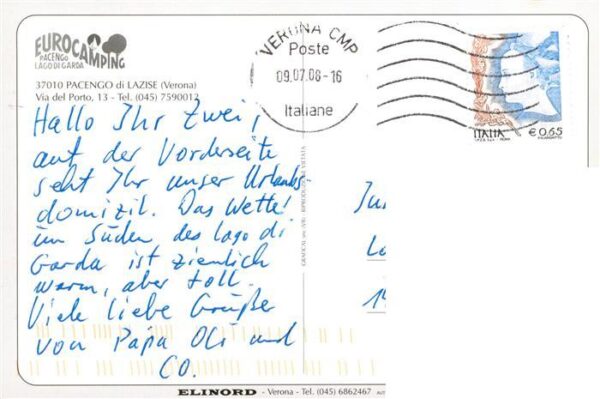 EUROCAMPING
PACENGO
LAGO DI GARDA
37010 PACENGO di LAZISE (Verona)
Via del Porto, 13 - Tel. (045) 7590012
VERONA CMP
Poste
09.07.08-16
Italiane
ITALIA € 0,65
Hallo Ihr Zwei,
auf der Vorderseite
seht Ihr unser Urlaubs-
domizil. Das Wetter
im Süden des Lago di
Garda ist ziemlich
warm, aber toll.
Viele liebe Grüße
von Papa Oli und
CO.
ELINORD - Verona - Tel. (045) 6862467